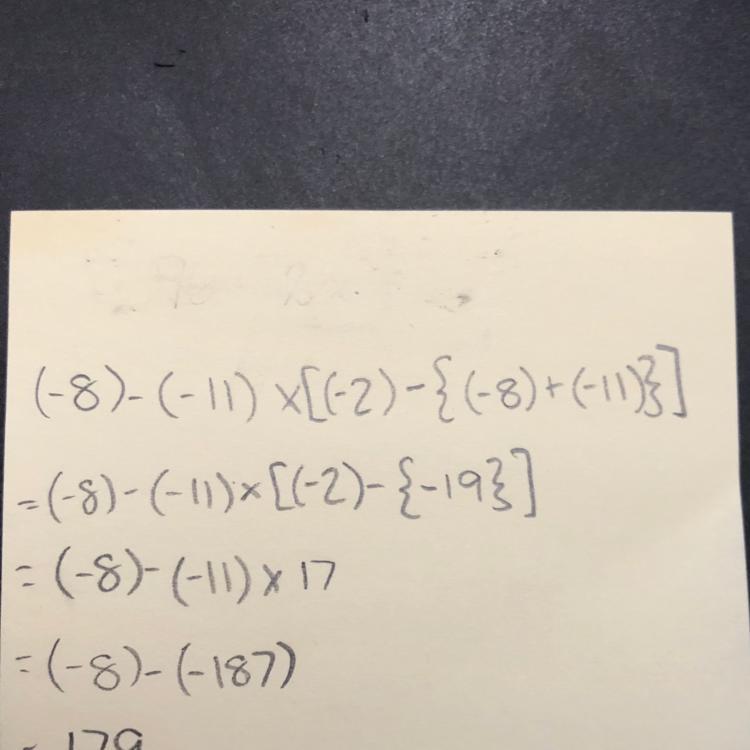 (-8)-(-11)×[(-2)-{(-8)+(-11)}]
=(-8)-(-11)×[(-2)-{-19}]
=(-8)-(-11)×17
=(-8)-(-187)
=179